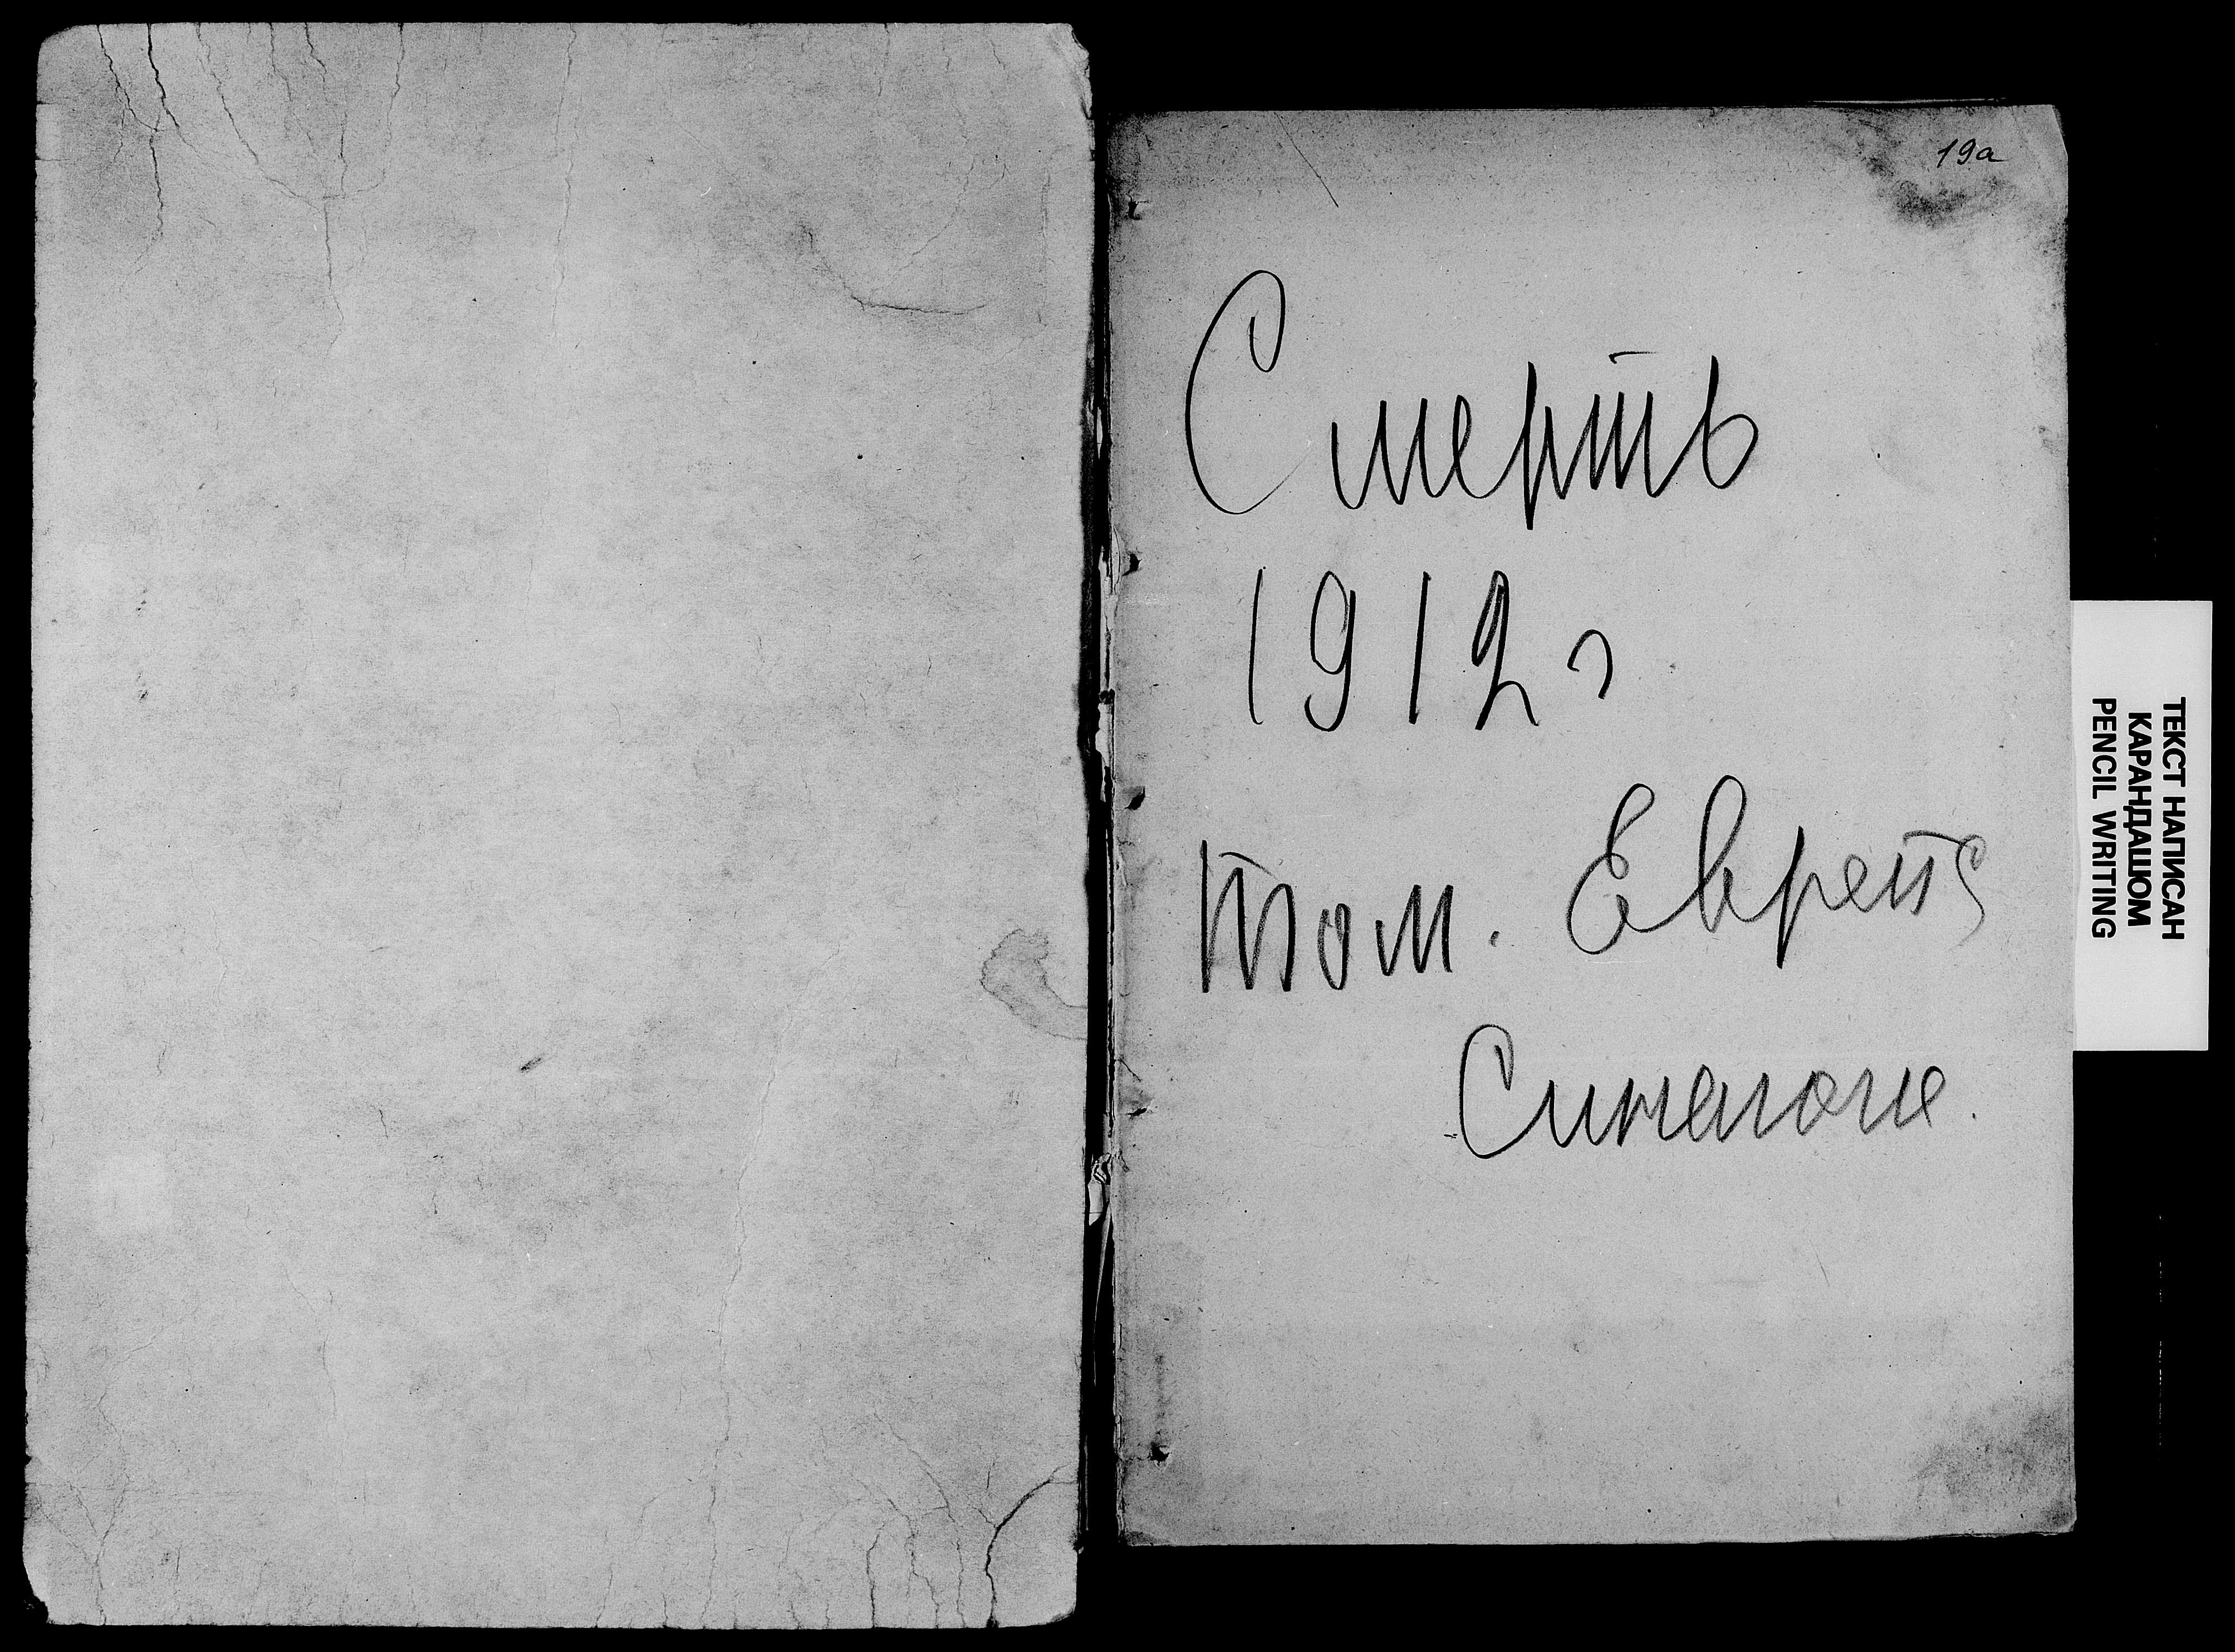 19а
Смерть
1912 г
Том. Еврейс
Синагоге.
ТЕКСТ НАПИСАН
КАРАНДАШОМ
PENCIL WRITING